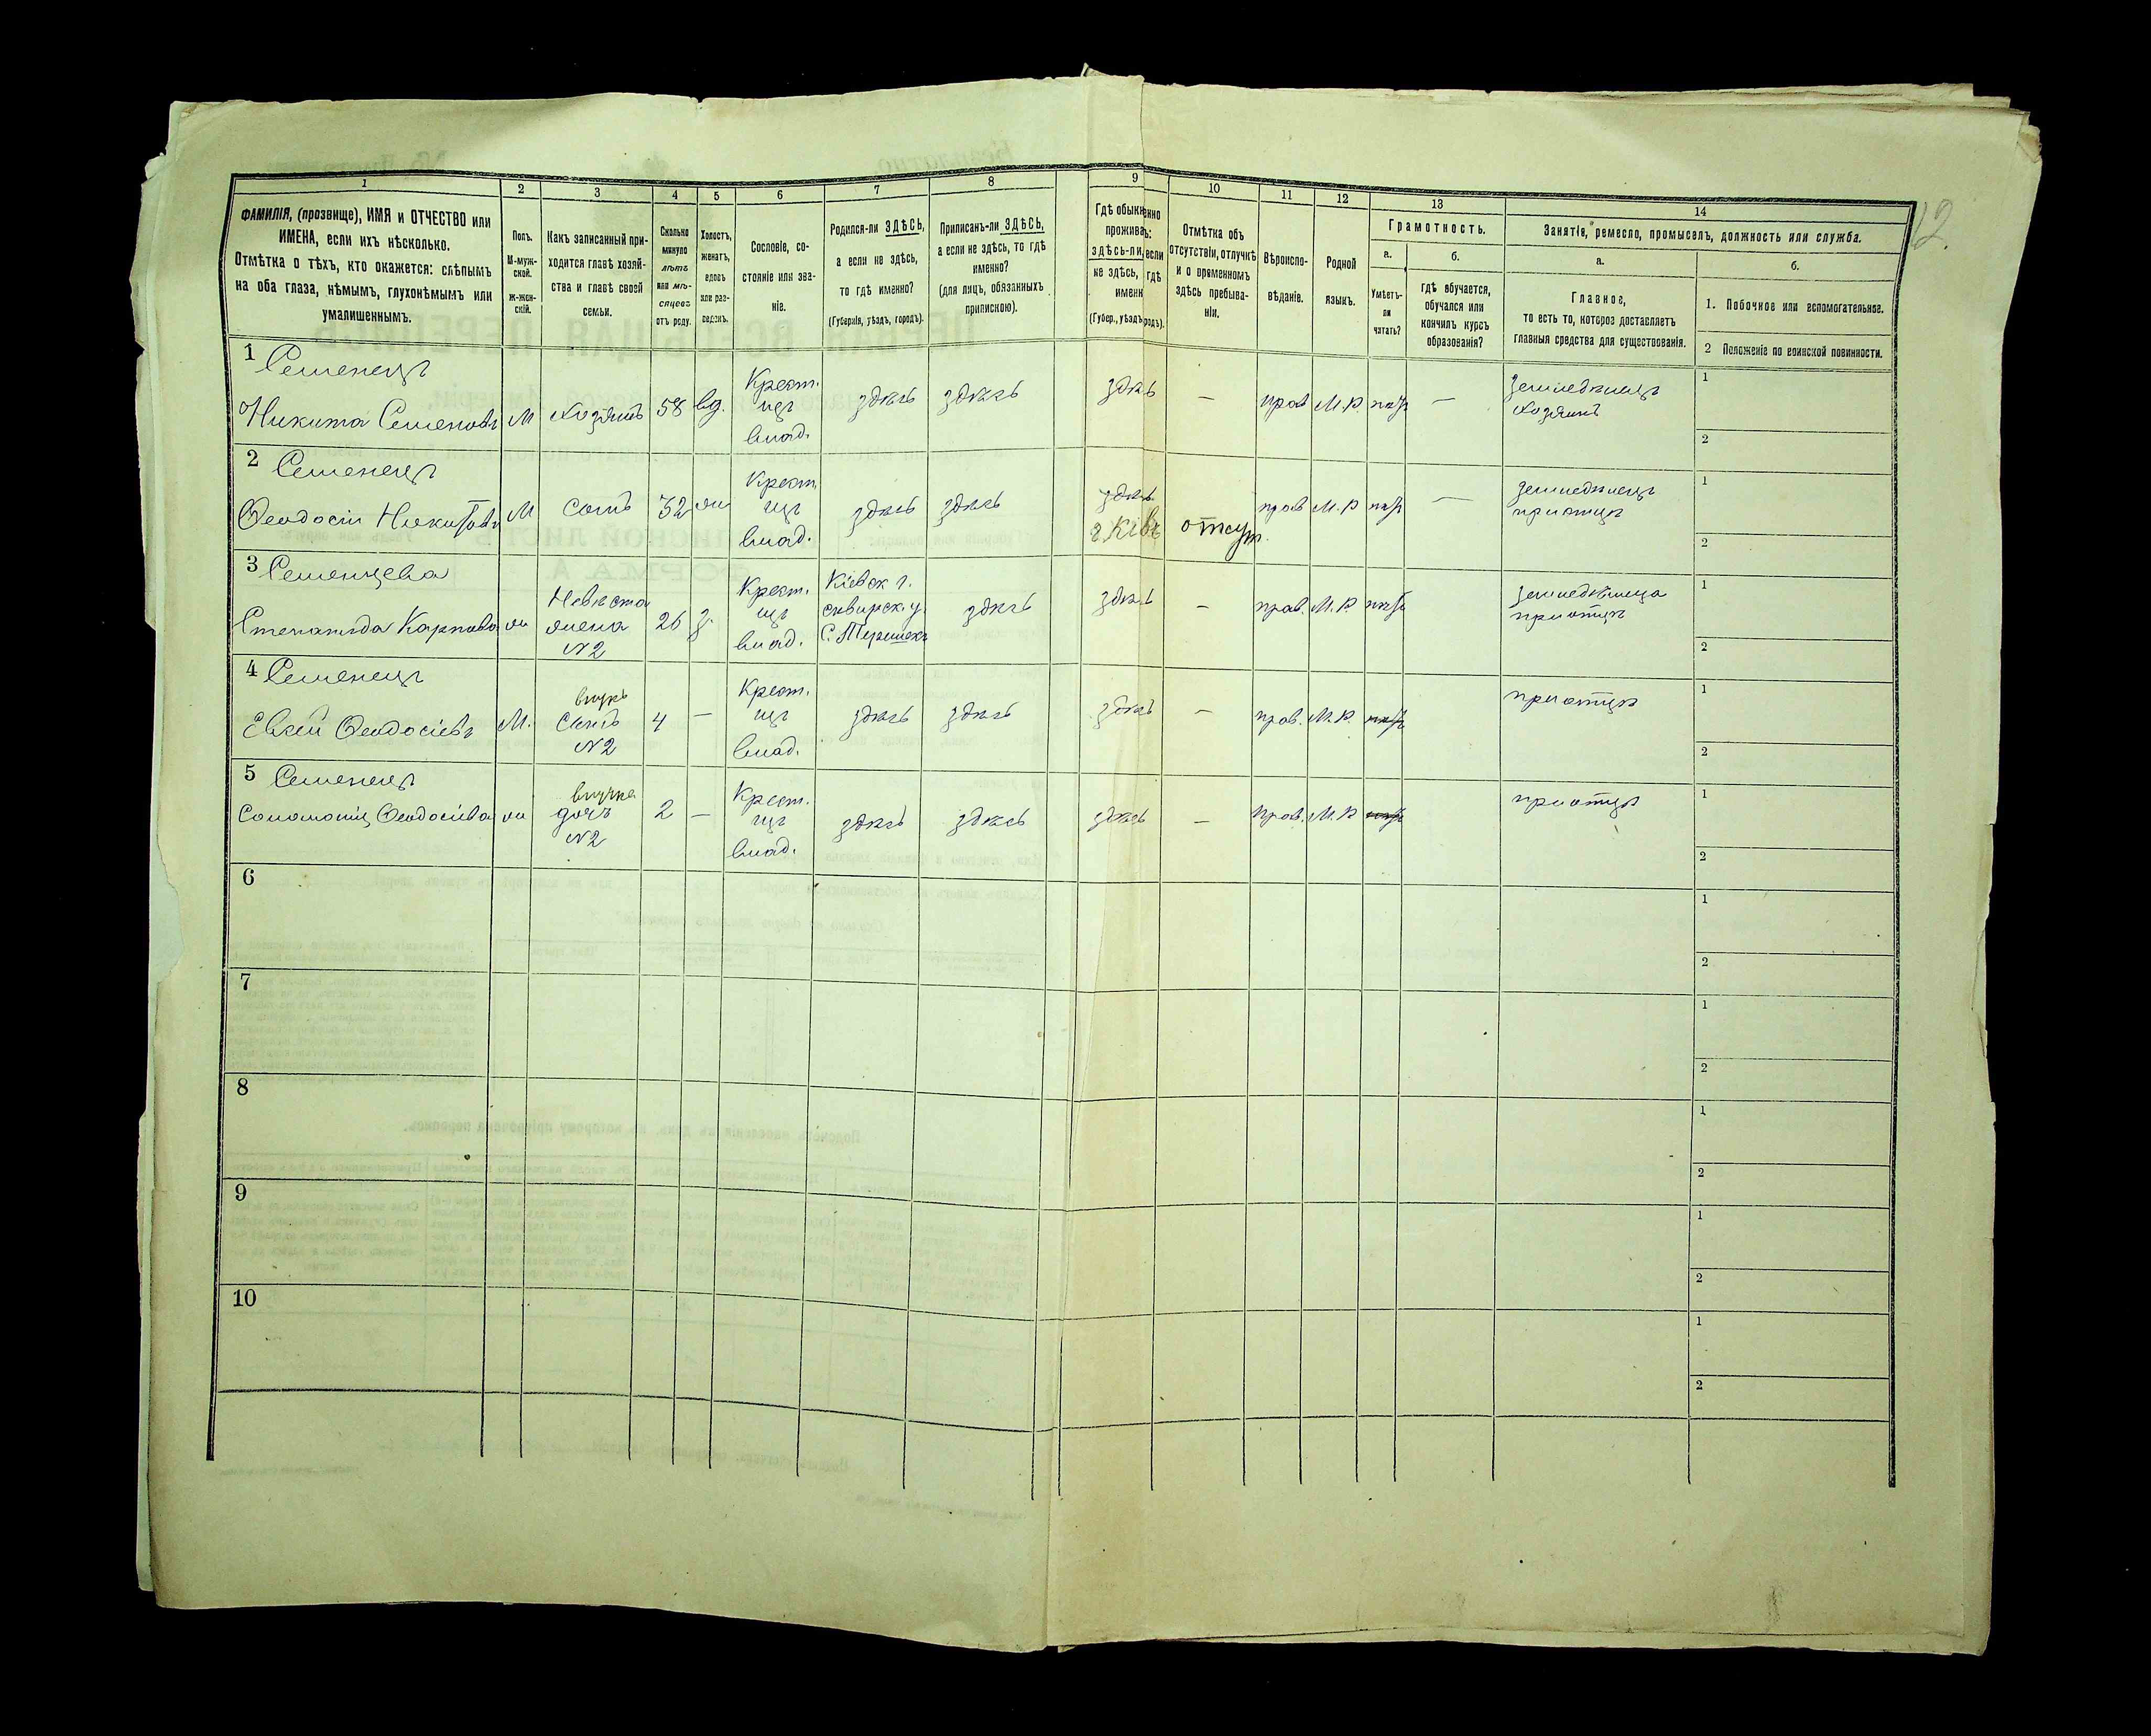 12.
1 2 3 4 5 6 7 8 9 10 11 12 13 14
ФАМИЛІЯ, (прозвище), ИМЯ и ОТЧЕСТВО или
ИМЕНА, если ихъ нѣсколько.
Отмѣтка о тѣхъ, кто окажется: слѣпымъ
на оба глаза, нѣмымъ, глухонѣмымъ или
умалишеннымъ.
Полъ.
М-муж-
ской.
ж-жен-
скій.
Какъ записанный при-
ходится главѣ хозяй-
ства и главѣ своей
семьи.
Сколько
минуло
лѣтъ
или мѣ-
сяцевъ
отъ роду.
Холостъ,
женатъ,
вдовъ
или раз-
веденъ.
Сословіе, со-
стояніе или зва-
ніе.
Родился-ли ЗДѢСЬ,
а если не здѣсь,
то гдѣ именно?
(Губернія, уѣздъ, городъ).
Приписанъ-ли ЗДѢСЬ,
а если не здѣсь, то гдѣ
именно?
(для лицъ, обязанныхъ
припискою).
Гдѣ обыкновенно
проживаетъ:
здѣсь-ли, если
не здѣсь, гдѣ
именно
(Губер., уѣздъ, городъ).
Отмѣтка объ
отсутствіи, отлучкѣ
и о временномъ
здѣсь пребыва-
ніи.
Вѣроиспо-
вѣданіе.
Родной
языкъ.
Грамотность.
а.
Умѣетъ-
ли
читать?
б.
гдѣ обучается,
обучался или
кончилъ курсъ
образованія?
Занятія, ремесло, промыселъ, должность или служба.
а.
Главное,
то есть то, которое доставляетъ
главныя средства для существованія.
б.
1. Побочное или вспомогательное.
2 Положеніе по воинской повинности.
1 Семенецъ
Никита Семеновъ М хозяинъ 58 вд. Крест. ицъ влад. здѣсь здѣсь здѣсь — прав М.Р нѣтъ — земледѣлецъ хозяинъ 1 2
2 Семенецъ
Феодосіи Никитовъ М сынъ 32 жн Крест. ицъ влад. здѣсь здѣсь здѣсь г. Кіевъ отсут. прав М.Р нѣтъ — земледѣлецъ при отцѣ 1 2
3 Семенцева
Степанида Карпова ж Невѣста жена №2 26 з. Крест. ицъ влад. Кіевск г. сквирск. у. здѣсь здѣсь — прав. М.Р. нѣтъ земледѣлица при отцѣ 1 2
4 Семенецъ
Евсей Феодосіевъ М. внукъ сынъ №2 4 — Крест. ицъ влад. здѣсь здѣсь здѣсь — прав. М.Р. нѣтъ при отцѣ 1 2
5 Семенецъ
Соломонія Феодосіева ж внучка дочь №2 2 — Крест. ицъ влад. здѣсь здѣсь здѣсь — прав. М.Р нѣтъ при отцѣ 1 2
6 1 2
7 1 2
8 1 2
9 1 2
10 1 2